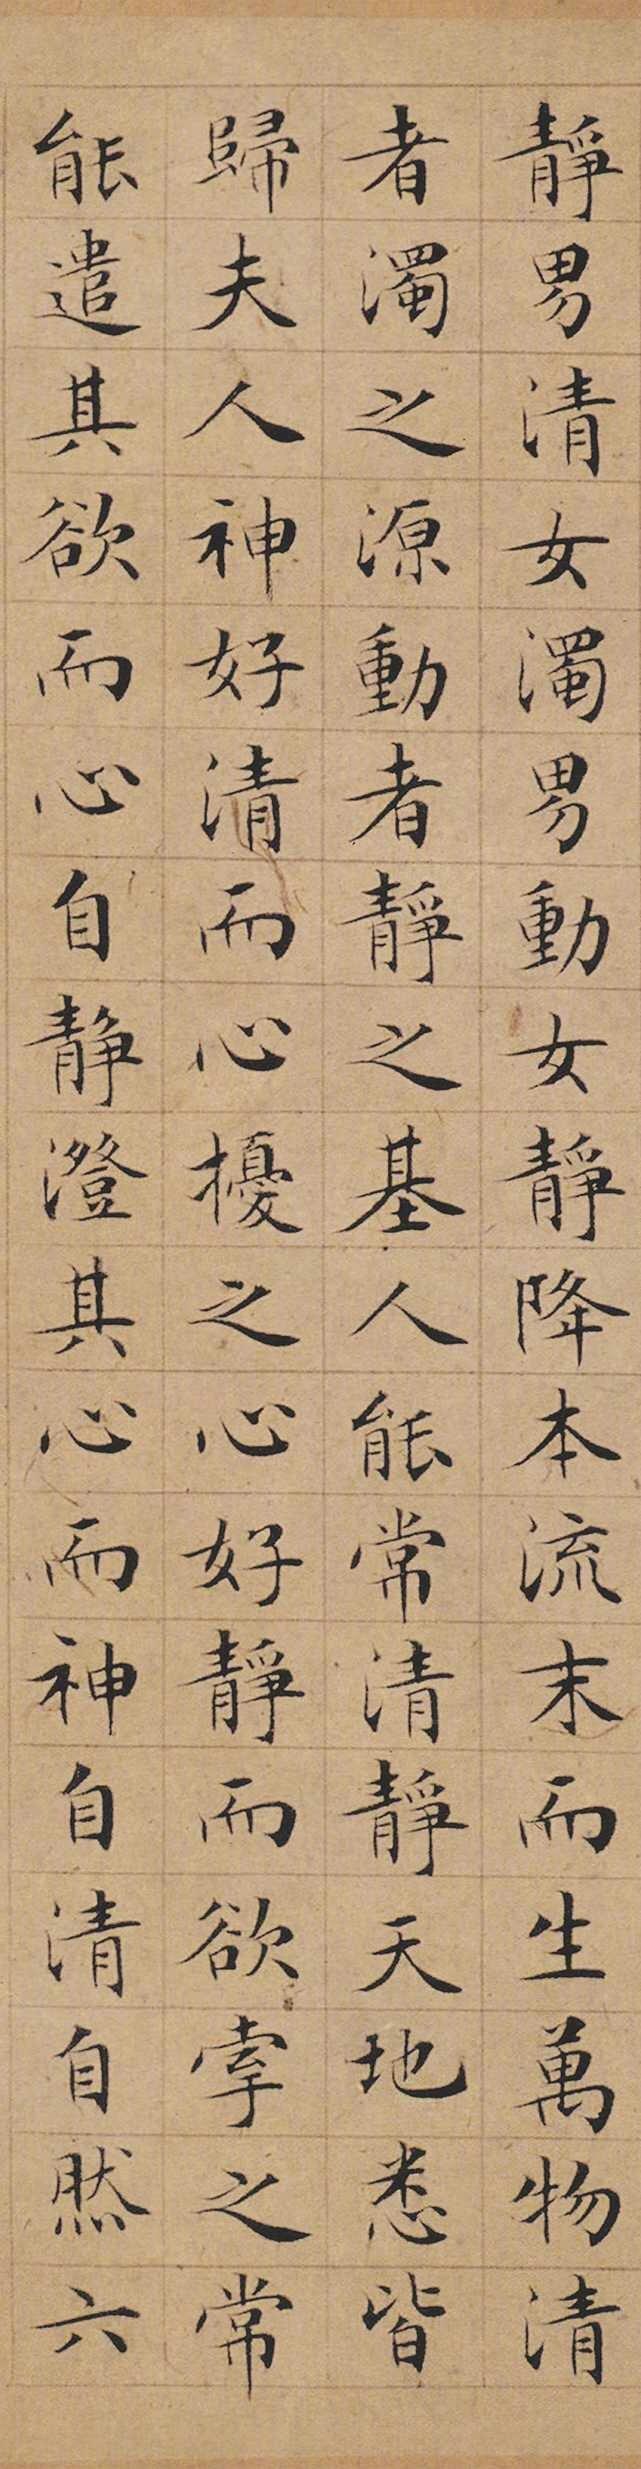 靜男清女濁男動女靜降本流末而生萬物清
者濁之源動者靜之基人能常清靜天地悉皆
歸夫人神好清而心擾之心好靜而欲牽之常
能遣其欲而心自静澄其心而神自清自然六